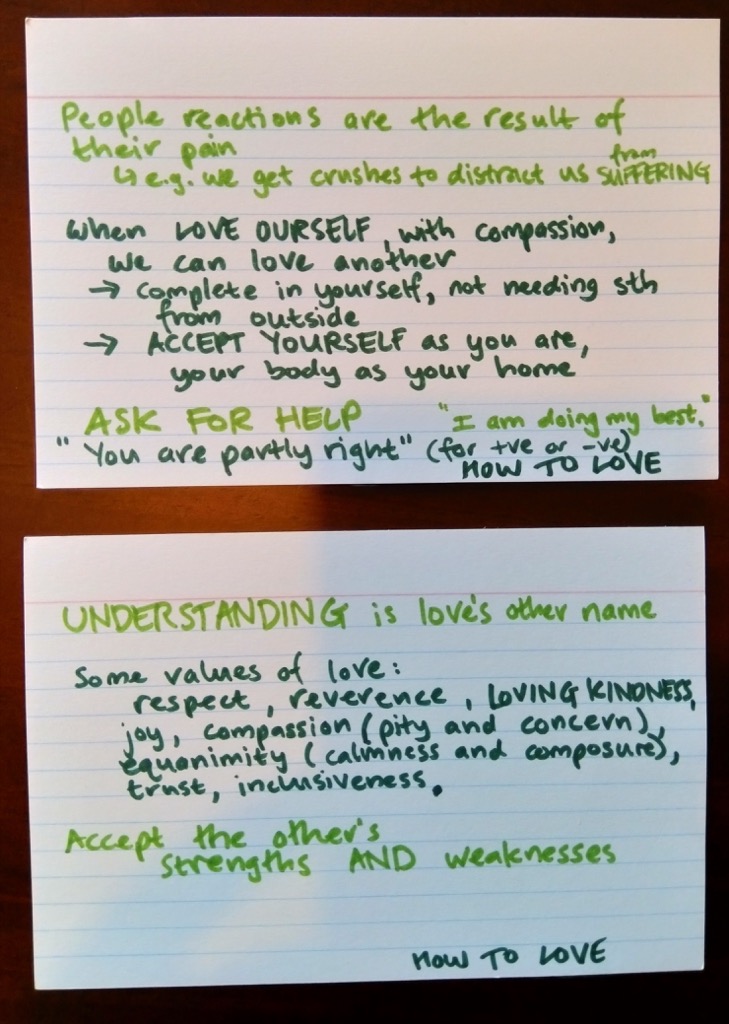 People reactions are the result of
their pain
↳ e.g. we get crushes to distract us from SUFFERING
When LOVE OURSELF, with compassion,
we can love another
→ complete in yourself, not needing sth
from outside
→ ACCEPT YOURSELF as you are,
your body as your home
ASK FOR HELP "I am doing my best."
"You are partly right" (for +ve or -ve)
HOW TO LOVE
UNDERSTANDING is love's other name
Some values of love:
respect, reverence, LOVING KINDNESS,
joy, compassion (pity and concern),
equanimity (calmness and composure),
trust, inclusiveness.
Accept the other's
strengths AND weaknesses
HOW TO LOVE